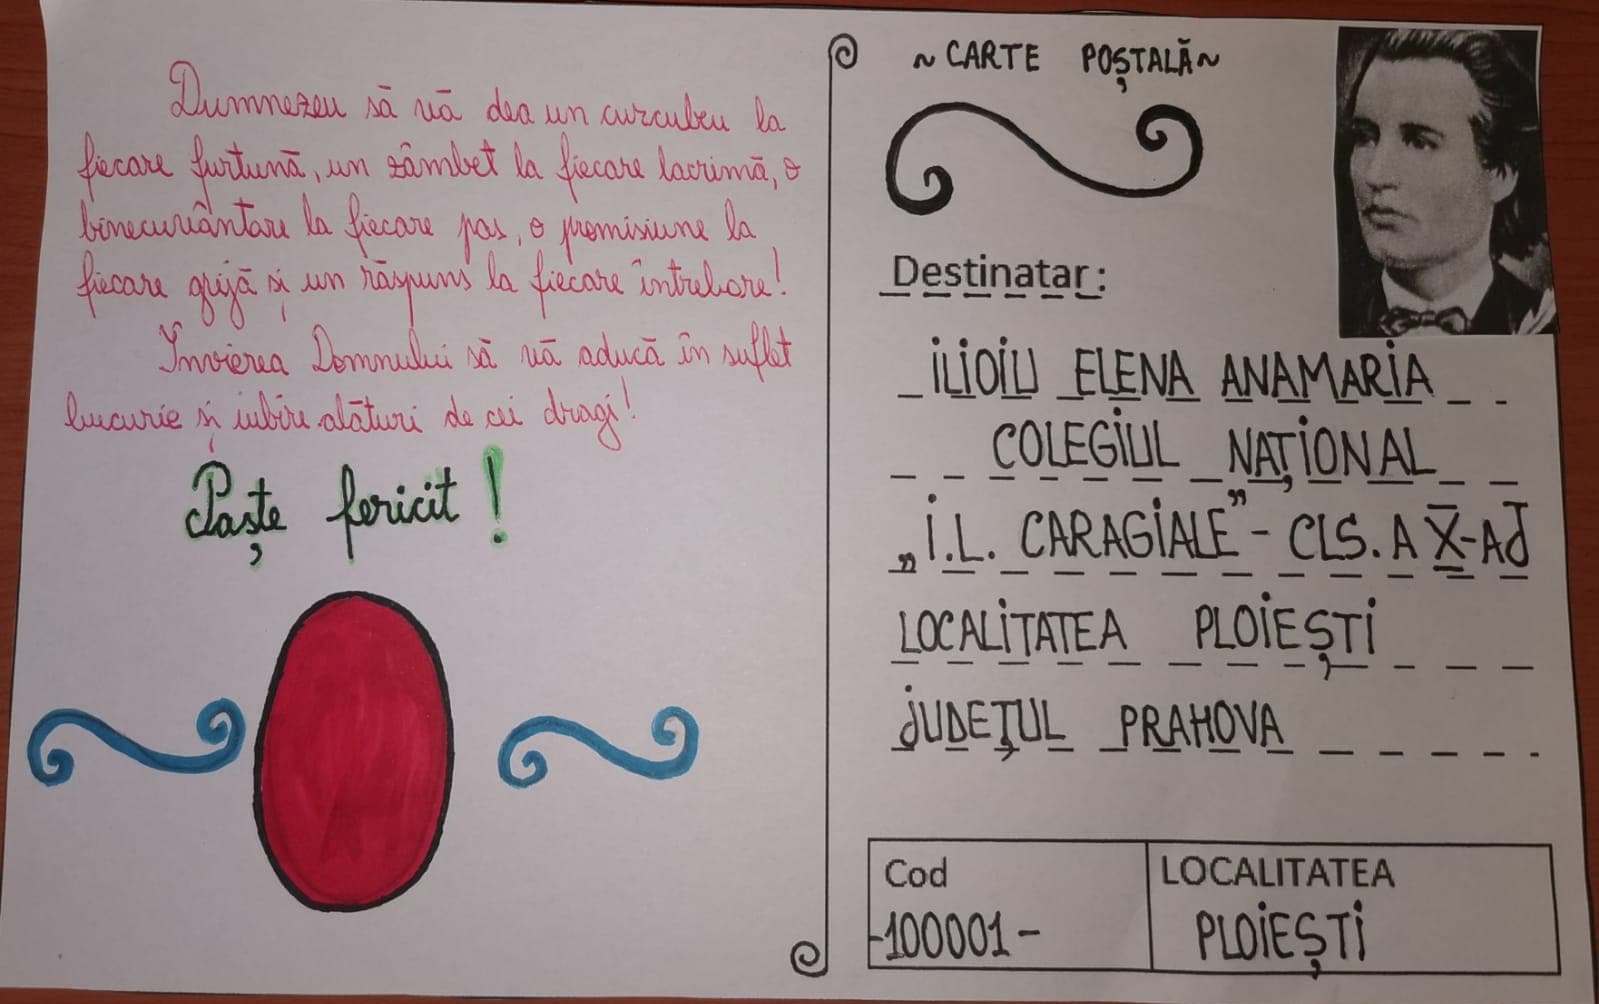 Dumnezeu să vă dea un curcubeu la
fiecare furtună, un zâmbet la fiecare lacrimă, o
binecuvântare la fiecare pas, o promisiune la
fiecare grijă și un răspuns la fiecare întrebare!
Învierea Domnului să vă aducă în suflet
bucurie și iubire alături de cei dragi!
Paște fericit!
~ CARTE POȘTALĂ ~
Destinatar:
ILIOIU ELENA ANAMARIA
COLEGIUL NAȚIONAL
„I.L. CARAGIALE” - CLS. A X-A J
LOCALITATEA PLOIEȘTI
JUDEȚUL PRAHOVA
Cod
-100001-
LOCALITATEA
PLOIEȘTI